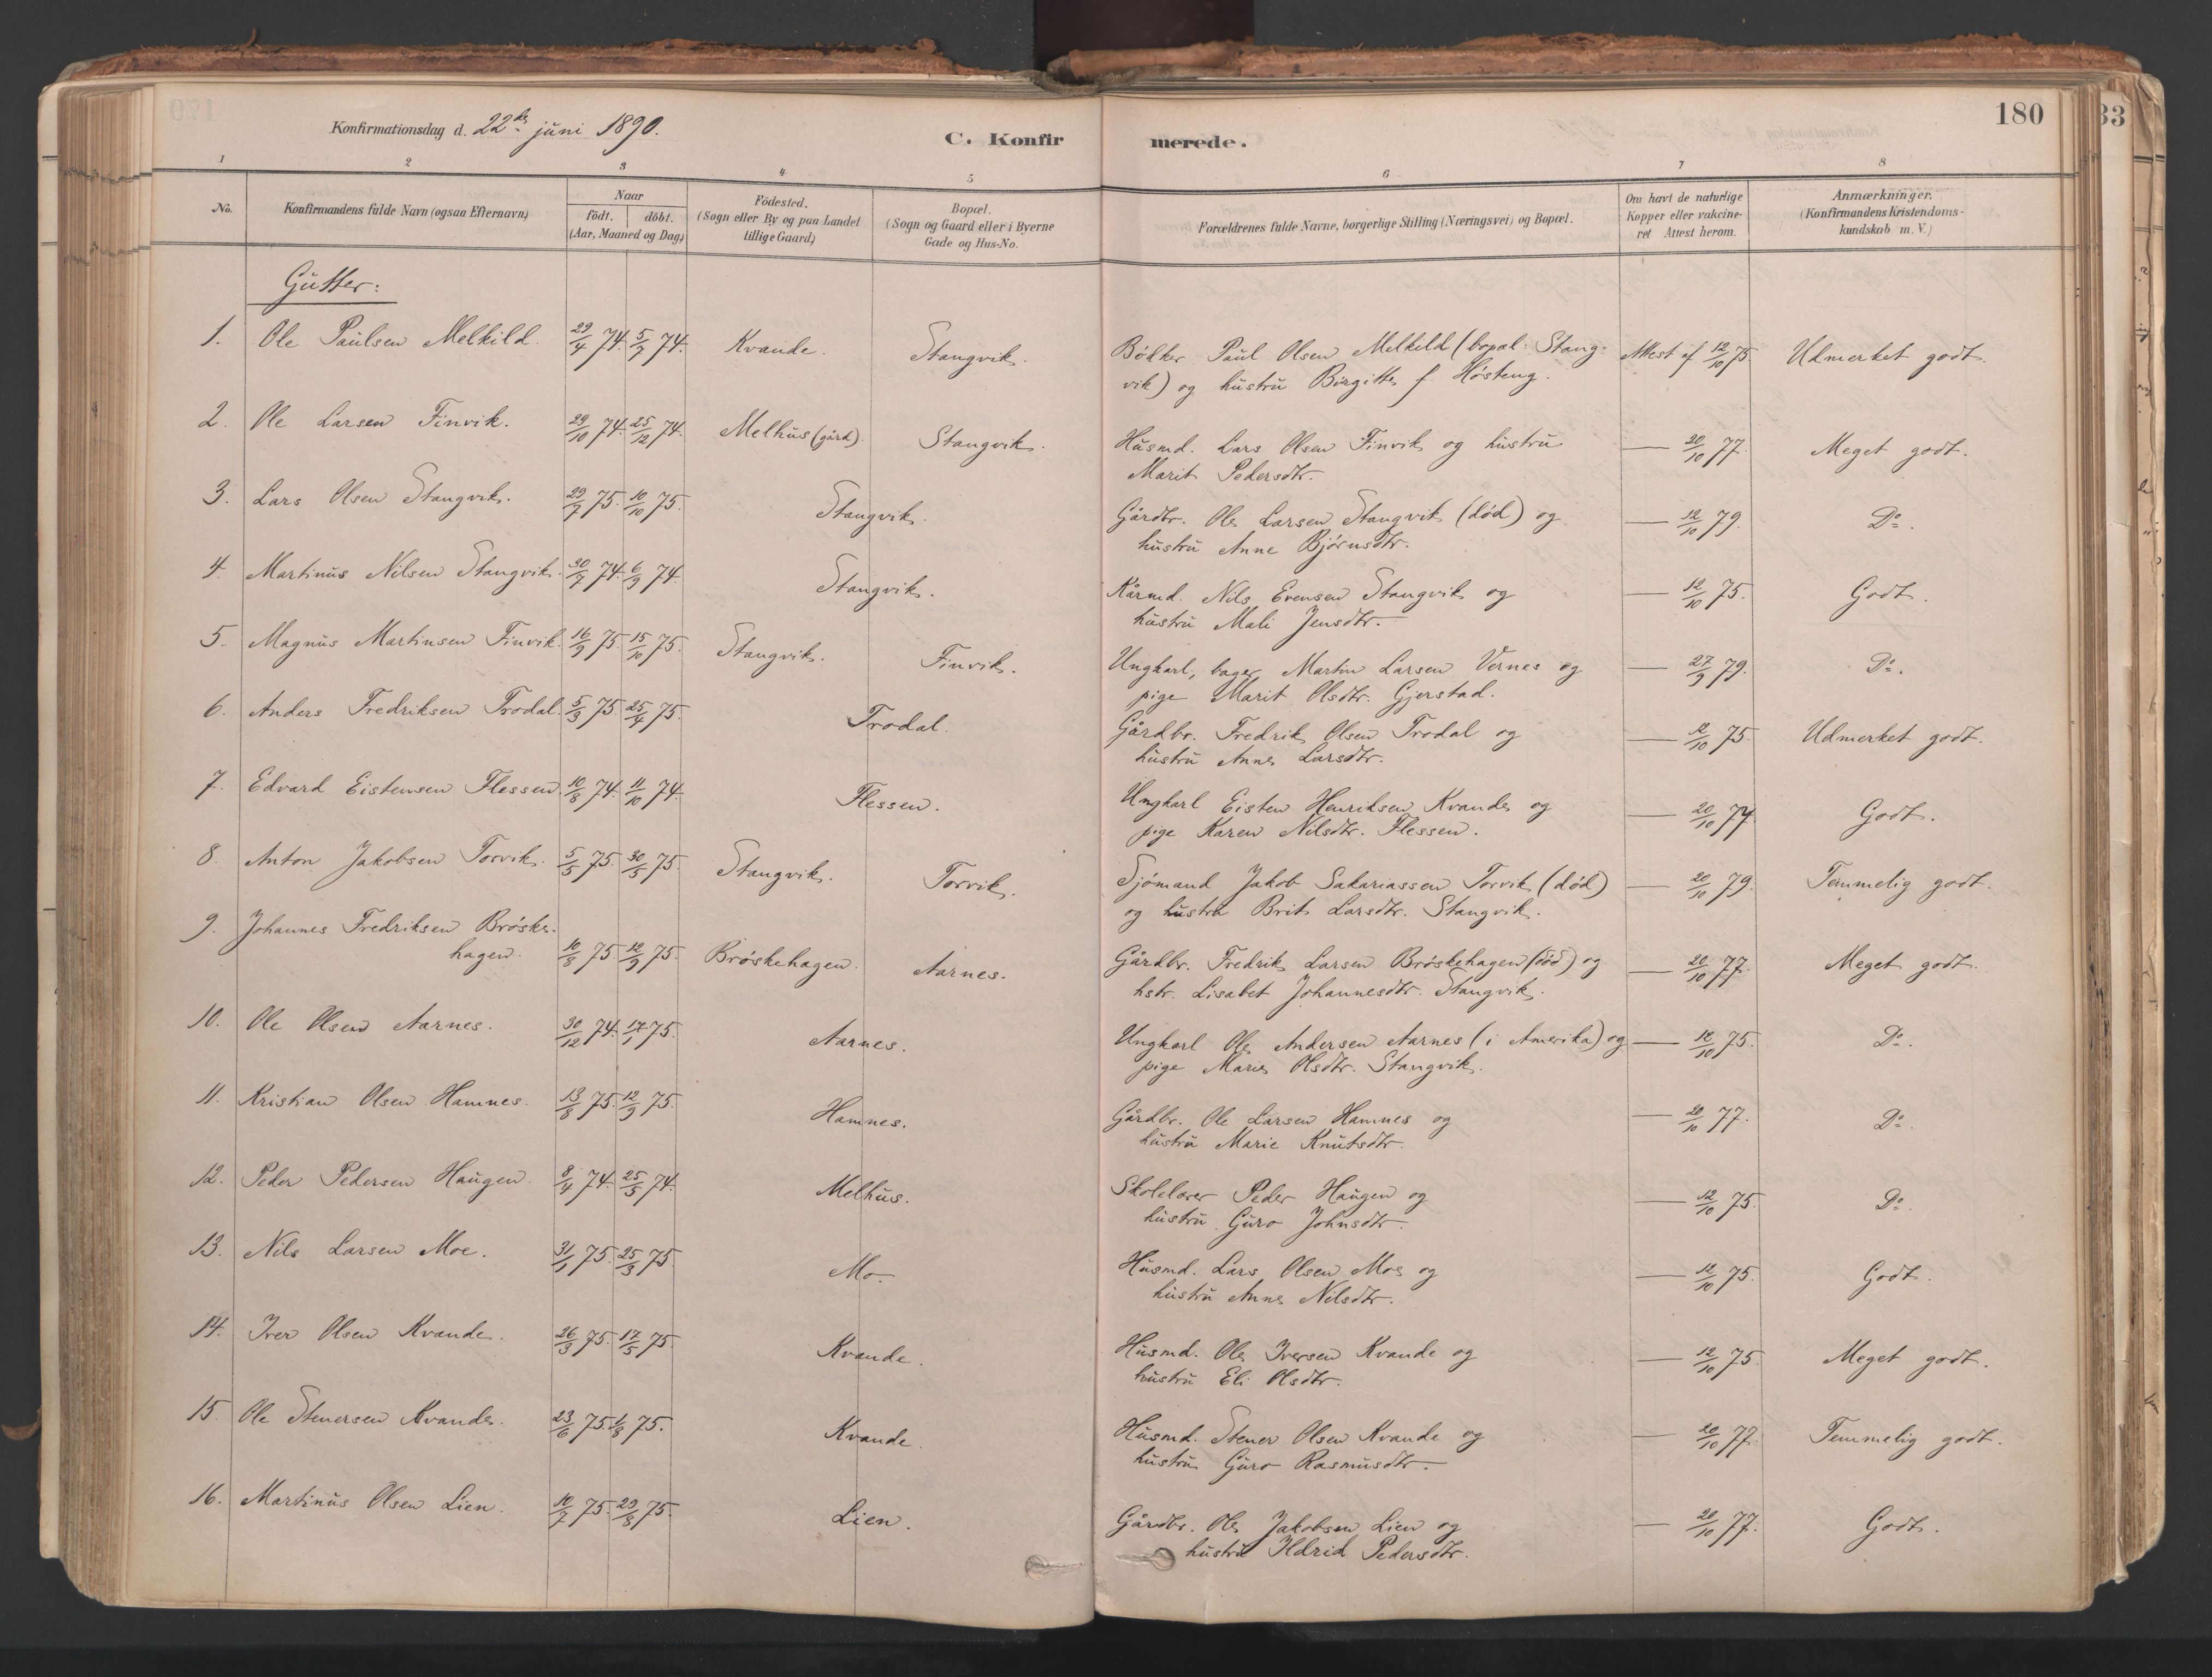 180
33
Konfirmationsdag d. 22de juni 1890.
C. Konfirmerede.
1 2 3 4 5 6 7 8
No. | Konfirmandens fulde Navn (ogsaa Efternavn) | Naar født. døbt. (Aar, Maaned og Dag) | Fødested. (Sogn eller By og paa Landet tillige Gaard) | Bopæl. (Sogn og Gaard eller i Byerne Gade og Hus-No. | Forældrenes fulde Navne, borgerlige Stilling (Næringsvei) og Bopæl. | Om havt de naturlige Kopper eller vakcineret Attest herom. | Anmærkninger. (Konfirmandens Kristendomskundskab m. V.)
Gutter:
1. Ole Paulsen Melkild. 29/4 74. 5/7 74. Kvande. Stangvik. Bødker Paul Olsen Melkild (bopæl: Stang-
vik) og hustru Birgitte f. Høsteng. Attest af 12/10 75. Udmerket godt.
2. Ole Larsen Finvik. 29/10 74. 25/12 74. Melhus (gård). Stangvik. Husmd. Lars Olsen Finvik og hustru
Marit Pedersdtr. — 20/10 77. Meget godt.
3. Lars Olsen Stangvik. 29/7 75. 10/10 75. Stangvik. Gårdbr. Ole Larsen Stangvik (død) og
hustru Anne Bjørnsdtr. — 12/10 79. Do.
4. Martinus Nilsen Stangvik. 30/7 74. 6/9 74. Stangvik. Kårmd. Nils Evensen Stangvik og
hustru Mali Jensdtr. — 12/10 75. Godt.
5. Magnus Martinsen Finvik. 16/9 75. 15/10 75. Stangvik. Finvik. Ungkarl, bager Martin Larsen Vernes og
pige Marit Olsdtr. Gjerstad. — 27/9 79. Do.
6. Anders Fredriksen Trodal. 5/3 75. 25/4 75. Trodal. Gårdbr. Fredrik Olsen Trodal og
hustru Anne Larsdtr. — 12/10 75. Udmerket godt.
7. Edvard Eistensen Flessen. 10/8 74. 11/10 74. Flessen. Ungkarl Eisten Henriksen Kvande og
pige Karen Nilsdtr. Flessen. — 20/10 77. Godt.
8. Anton Jakobsen Torvik. 5/5 75. 30/5 75. Stangvik. Torvik. Sjømand Jakob Sakariassen Torvik (død)
og hustru Brit Larsdtr. Stangvik. — 20/10 79. Temmelig godt.
9. Johannes Fredriksen Brøske-
hagen. 10/8 75. 12/9 75. Brøskehagen. Aarnes. Gårdbr. Fredrik Larsen Brøskehagen (død) og
hstr. Lisabet Johannesdtr. Stangvik. — 20/10 77. Meget godt.
10. Ole Olsen Aarnes. 30/12 74. 17/1 75. Aarnes. Ungkarl Ole Andersen Aarnes (i Amerika) og
pige Marie Olsdtr. Stangvik. — 12/10 75. Do.
11. Kristian Olsen Hamnes. 13/8 75. 12/9 75. Hamnes. Gårdbr. Ole Larsen Hamnes og
hustru Marie Knutsdtr. — 20/10 77. Do.
12. Peder Pedersen Haugen. 8/4 74. 25/5 74. Melhus. Skolelærer Peder Haugen og
hustru Guro Johnsdtr. — 12/10 75. Do.
13. Nils Larsen Moe. 31/1 75. 25/3 75. Mo. Husmd. Lars Olsen Moe og
hustru Anne Nilsdtr. — 12/10 75. Godt.
14. Iver Olsen Kvande. 26/3 75. 17/5 75. Kvande. Husmd. Ole Iversen Kvande og
hustru Eli Olsdtr. — 12/10 75. Meget godt.
15. Ole Stenersen Kvande. 23/6 75. 1/8 75. Kvande. Husmd. Stener Olsen Kvande og
hustru Guro Rasmusdtr. — 20/10 77. Temmelig godt.
16. Martinus Olsen Lien. 10/7 75. 29/8 75. Lien. Gårdbr. Ole Jakobsen Lien og
hustru Ildrid Pedersdtr. — 20/10 77. Godt.